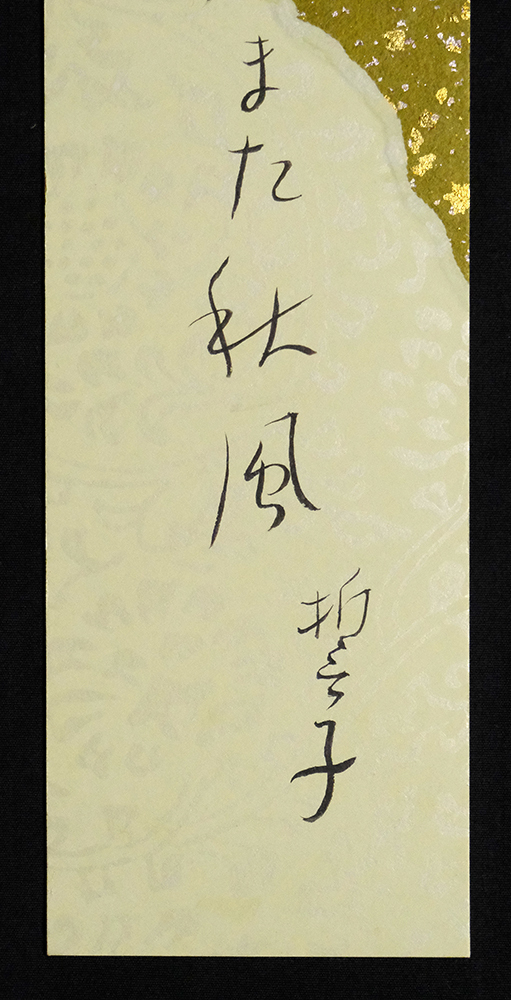 また秋風
誓子